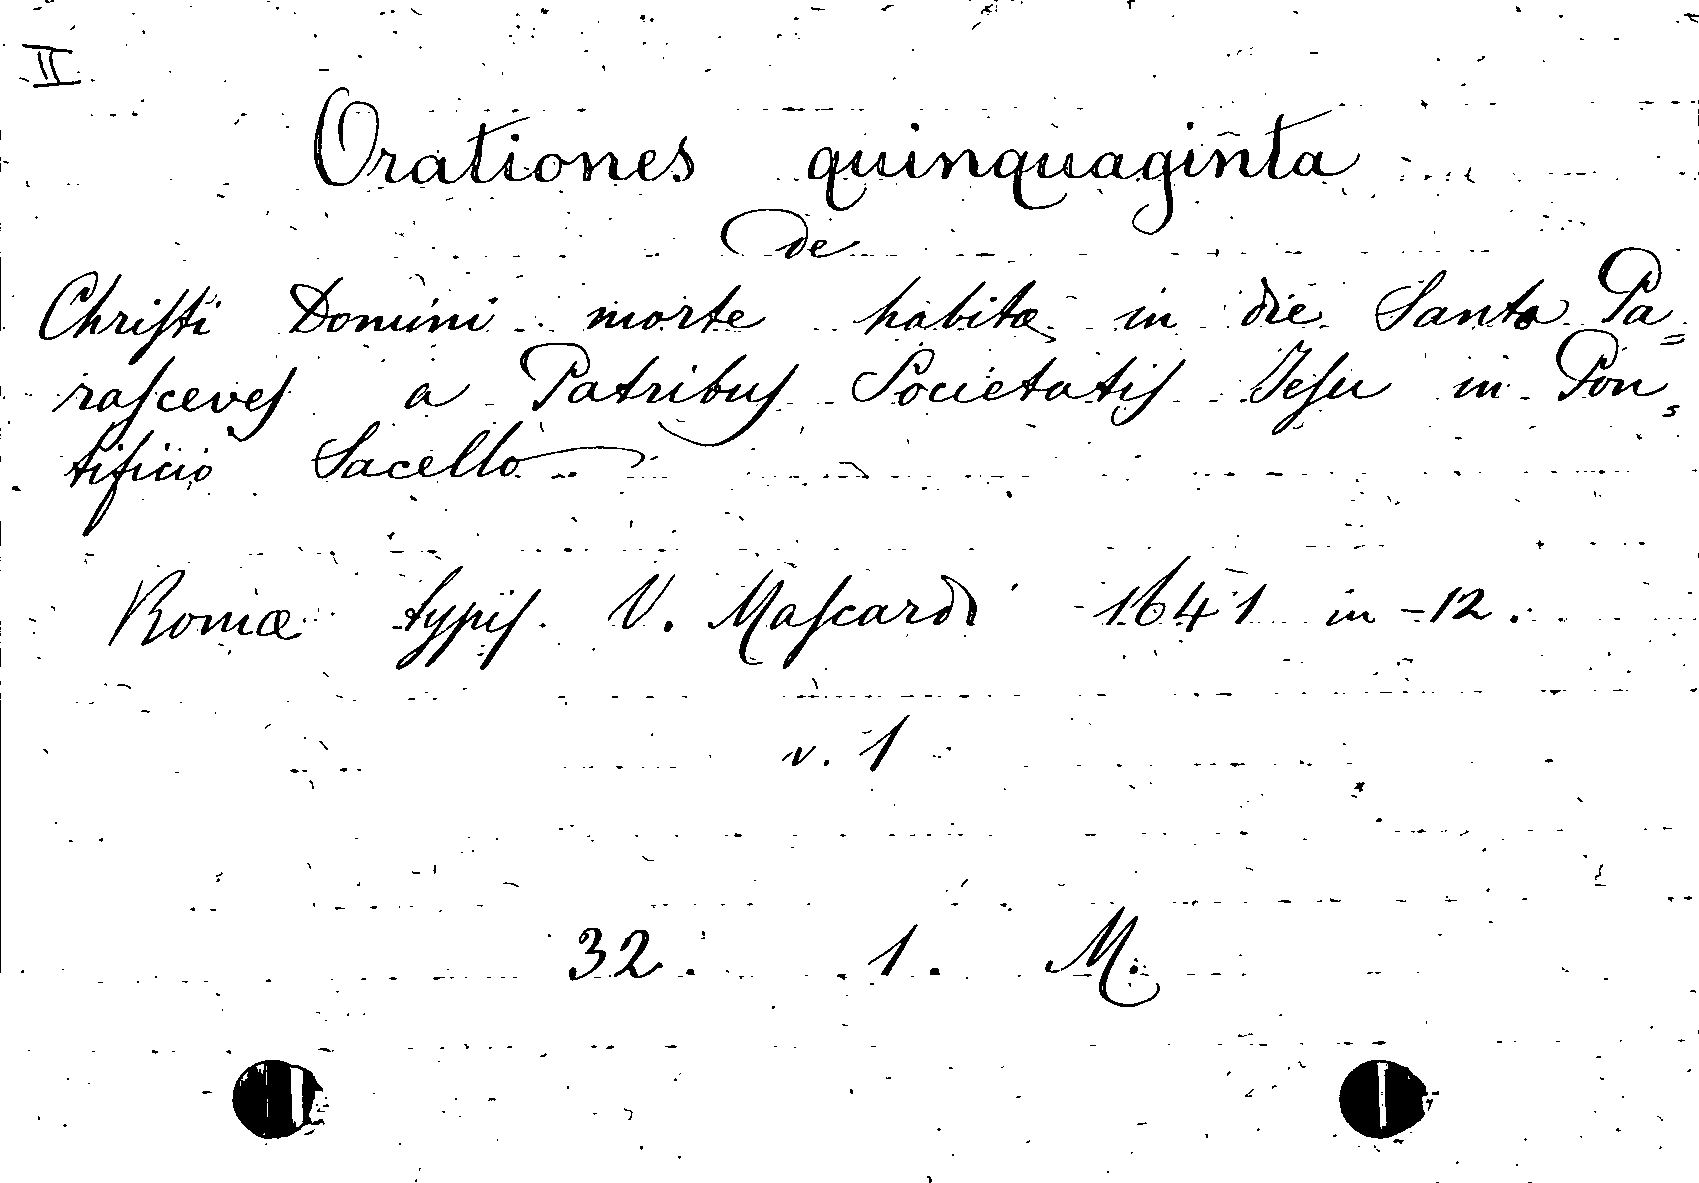 II
Orationes quinquaginta
de
Chriſti Domini morte habitæ in die Santa Pa=
raſceveſ a Patribuſ Societatiſ Jeſu in Pon=
tificio Sacello
Romæ typiſ V. Maſcardi 1641 in-12.
v. 1
32. 1. M.